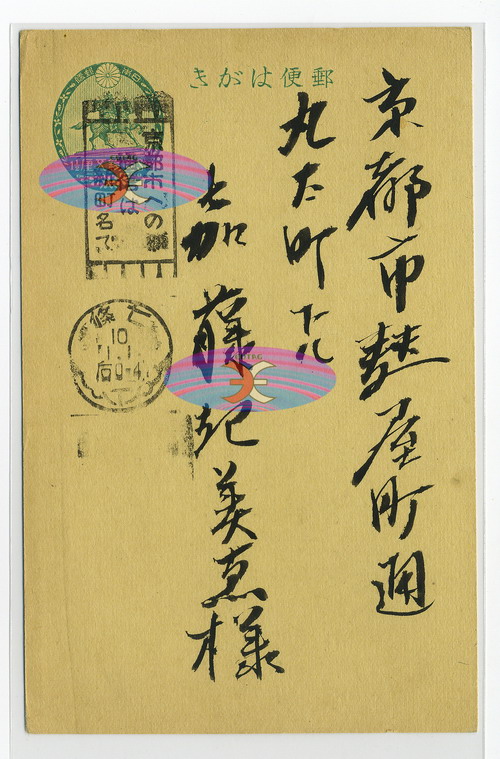 郵便はがき
京都市麩屋町通
丸太町下ル
加藤紀美惠様
京都市への
町名で
七條
10
1.1
后0-4